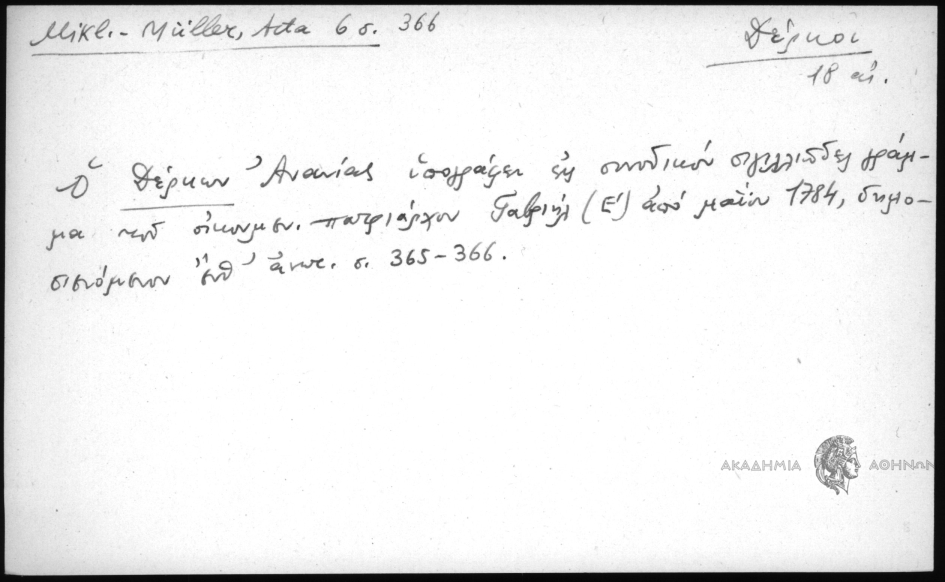 Mikl.- Müller, Acta 6 σ. 366
Δέρκοι
18 αἰ.
Ὁ Δέρκων Ἀνανίας ὑπογράφει εἰς συνοδικόν σιγιλλιῶδες γράμ-
μα τοῦ οἰκουμεν. πατριάρχου Γαβριήλ (Ε') ἀπό μαΐου 1784, δημο-
σιευόμενον ἔνθ' ἀνωτ. σ. 365-366.
ΑΚΑΔΗΜΙΑ ΑΘΗΝΩΝ